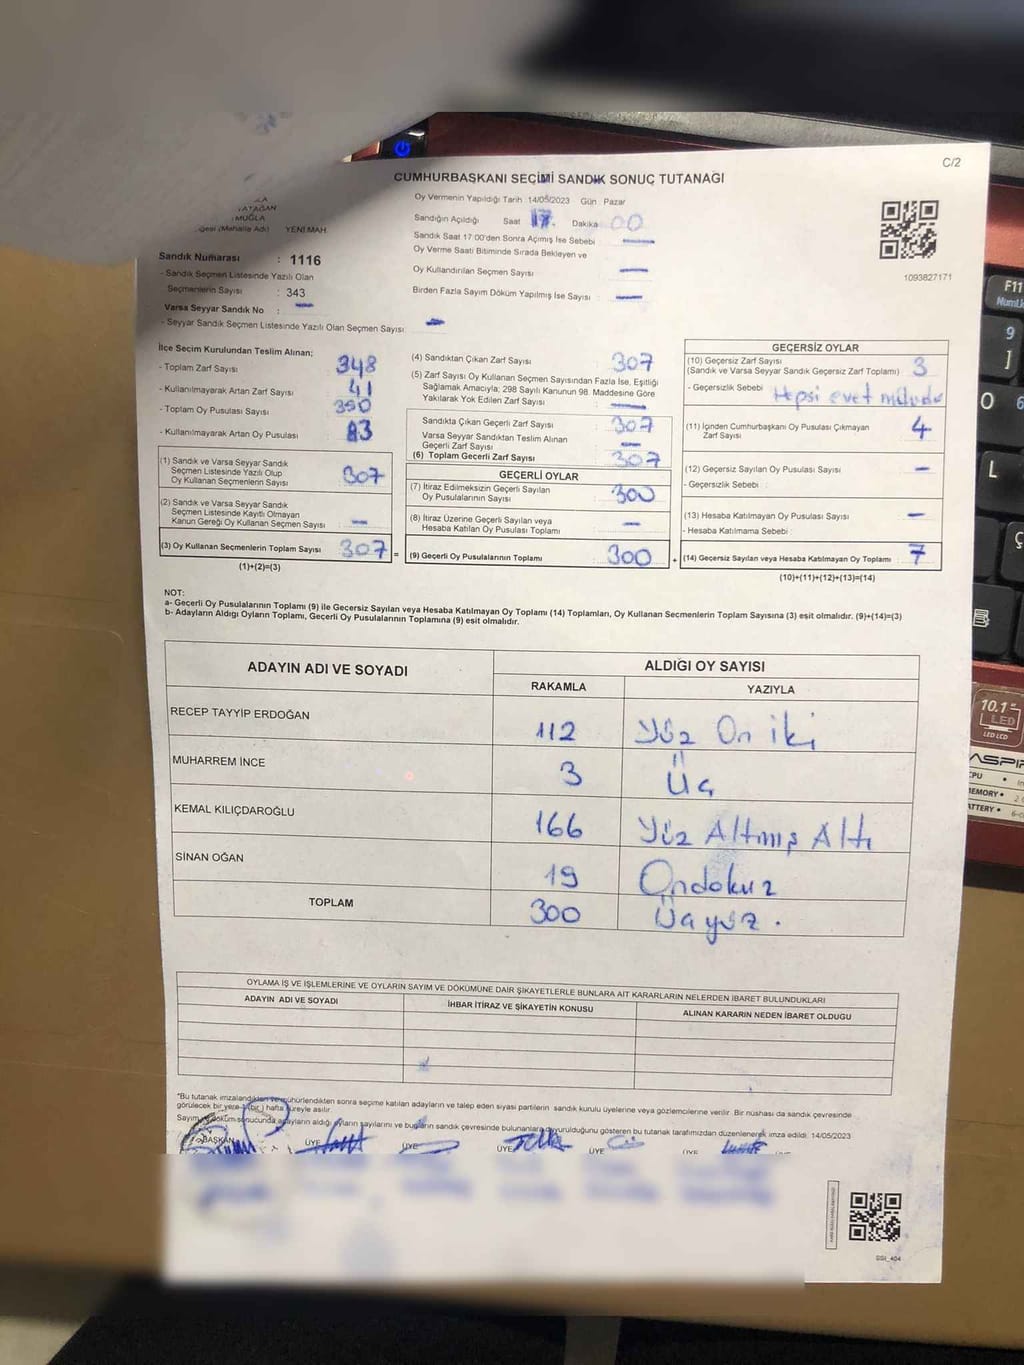 C/2
CUMHURBAŞKANI SEÇİMİ SANDIK SONUÇ TUTANAĞI
YATAĞAN
MUĞLA
(Mahalle Adı) YENİ MAH.
Sandık Numarası : 1116
- Sandık Seçmen Listesinde Yazılı Olan
Seçmenlerin Sayısı : 343
Varsa Seyyar Sandık No : -
- Seyyar Sandık Seçmen Listesinde Yazılı Olan Seçmen Sayısı : -
Oy Vermenin Yapıldığı Tarih 14/05/2023 Gün Pazar
Sandığın Açıldığı Saat 17. Dakika 00
Sandık Saat 17:00'den Sonra Açılmış İse Sebebi -
Oy Verme Saati Bitiminde Sırada Bekleyen ve
Oy Kullandırılan Seçmen Sayısı -
Birden Fazla Sayım Döküm Yapılmış İse Sayısı -
1093827171
İlçe Seçim Kurulundan Teslim Alınan;
- Toplam Zarf Sayısı : 348
- Kullanılmayarak Artan Zarf Sayısı : 41
- Toplam Oy Pusulası Sayısı : 390
- Kullanılmayarak Artan Oy Pusulası : 83
(1) Sandık ve Varsa Seyyar Sandık
Seçmen Listesinde Yazılı Olup
Oy Kullanan Seçmenlerin Sayısı : 307
(2) Sandık ve Varsa Seyyar Sandık
Seçmen Listesinde Kayıtlı Olmayan
Kanun Gereği Oy Kullanan Seçmen Sayısı : -
(3) Oy Kullanan Seçmenlerin Toplam Sayısı : 307 =
(1)+(2)=(3)
(4) Sandıktan Çıkan Zarf Sayısı : 307
(5) Zarf Sayısı Oy Kullanan Seçmen Sayısından Fazla İse, Eşitliği
Sağlamak Amacıyla; 298 Sayılı Kanunun 98. Maddesine Göre
Yakılarak Yok Edilen Zarf Sayısı : -
Sandıkta Çıkan Geçerli Zarf Sayısı : 307
Varsa Seyyar Sandıktan Teslim Alınan
Geçerli Zarf Sayısı : -
(6) Toplam Geçerli Zarf Sayısı : 307
GEÇERLİ OYLAR
(7) İtiraz Edilmeksizin Geçerli Sayılan
Oy Pusulalarının Sayısı : 300
(8) İtiraz Üzerine Geçerli Sayılan veya
Hesaba Katılan Oy Pusulası Toplamı : -
(9) Geçerli Oy Pusulalarının Toplamı : 300 +
GEÇERSİZ OYLAR
(10) Geçersiz Zarf Sayısı
(Sandık ve Varsa Seyyar Sandık Geçersiz Zarf Toplamı) : 3
- Geçersizlik Sebebi : Hepsi evet
(11) İçinden Cumhurbaşkanı Oy Pusulası Çıkmayan
Zarf Sayısı : 4
(12) Geçersiz Sayılan Oy Pusulası Sayısı : -
- Geçersizlik Sebebi :
(13) Hesaba Katılmayan Oy Pusulası Sayısı : -
- Hesaba Katılmama Sebebi :
(14) Geçersiz Sayılan veya Hesaba Katılmayan Oy Toplamı : 7
(10)+(11)+(12)+(13)=(14)
NOT:
a- Geçerli Oy Pusulalarının Toplamı (9) ile Geçersiz Sayılan veya Hesaba Katılmayan Oy Toplamı (14) Toplamları, Oy Kullanan Seçmenlerin Toplam Sayısına (3) eşit olmalıdır. (9)+(14)=(3)
b- Adayların Aldığı Oyların Toplamı, Geçerli Oy Pusulalarının Toplamına (9) eşit olmalıdır.
ADAYIN ADI VE SOYADI
ALDIĞI OY SAYISI
RAKAMLA YAZIYLA
RECEP TAYYİP ERDOĞAN 112 Yüz On iki
MUHARREM İNCE 3 Üç
KEMAL KILIÇDAROĞLU 166 Yüz Altmış Altı
SİNAN OĞAN 19 Ondokuz
TOPLAM 300 Üçyüz.
OYLAMA İŞ VE İŞLEMLERİNE VE OYLARIN SAYIM VE DÖKÜMÜNE DAİR ŞİKAYETLERLE BUNLARA AİT KARARLARIN NELERDEN İBARET BULUNDUKLARI
ADAYIN ADI VE SOYADI İHBAR İTİRAZ VE ŞİKAYETİN KONUSU ALINAN KARARIN NEDEN İBARET OLDUĞU
*Bu tutanak imzalandıktan ve mühürlendikten sonra seçime katılan adayların ve talep eden siyasi partilerin sandık kurulu üyelerine veya gözlemcilerine verilir. Bir nüshası da sandık çevresinde
görülecek bir yere 1 (bir) hafta süreyle asılır.
Sayım ve döküm sonucunda adayların aldığı oyların sayılarını ve bunların sandık çevresinde bulunanlara duyurulduğunu gösteren bu tutanak tarafımızdan düzenlenerek imza edildi. 14/05/2023
BAŞKAN ÜYE ÜYE ÜYE ÜYE ÜYE ÜYE
F11
NumLk
9
]
O 6
L
Ç
10.1"
LED
LED LCD
ASPIR
CPU
MEMORY • 2
BATTERY • 6-c